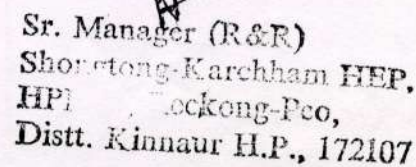 Sr. Manager (R&R)
Shongtong-Karchham HEP,
Distt. Kinnaur H.P., 172107